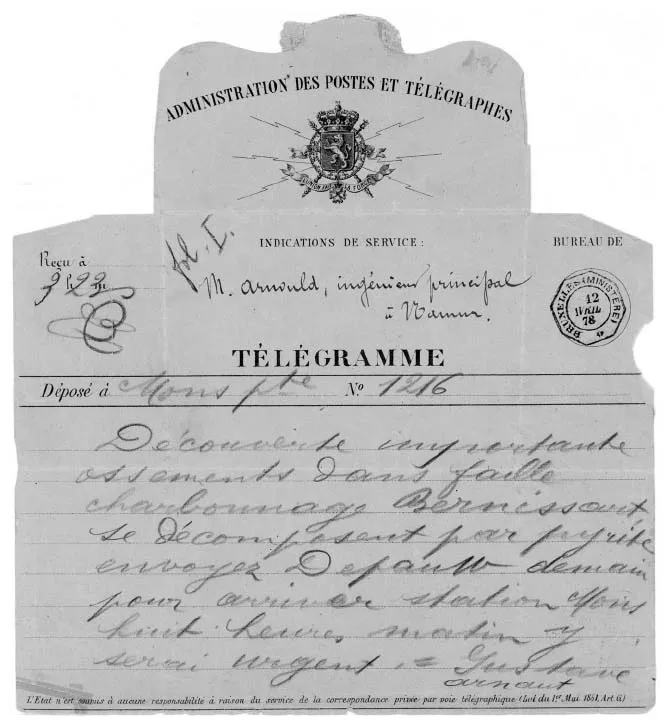 ADMINISTRATION DES POSTES ET TÉLÉGRAPHES
L'UNION FAIT LA FORCE
fol. I.
INDICATIONS DE SERVICE :
BUREAU DE
Reçu à
3 h 22 m
M. Arnould, ingénieur principal
à Namur.
BRUXELLES (MINISTÈRE)
12
AVRIL
78
6
TÉLÉGRAMME
Déposé à Mons pte No 1216
Découverte importante
ossements dans faille
charbonnage Bernissart
se décomposent par pyrite
envoyez Depauw demain
pour arriver station Mons
huit heures matin y
serai urgent = Gustave
arnaut
L'Etat n'est soumis à aucune responsabilité à raison du service de la correspondance privée par voie télégraphique (Loi du 1er Mai 1851, Art. 6)